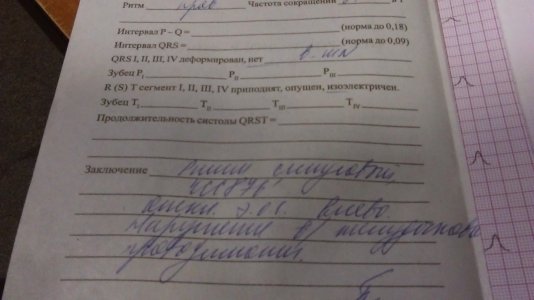 Ритм прав Частота сокращений
Интервал P – Q = (норма до 0,18)
Интервал QRS = (норма до 0,09)
QRS I, II, III, IV деформирован, нет
Зубец P I P II P III
R (S) T сегмент I, II, III, IV приподнят, опущен, изоэлектричен.
Зубец T I T II T III T IV
Продолжительность систолы QRST =
Заключение Ритм синусовый,
ЧСС 876
Откл. э.о.с. влево.
Нарушение в/желудочковой
проводимости.